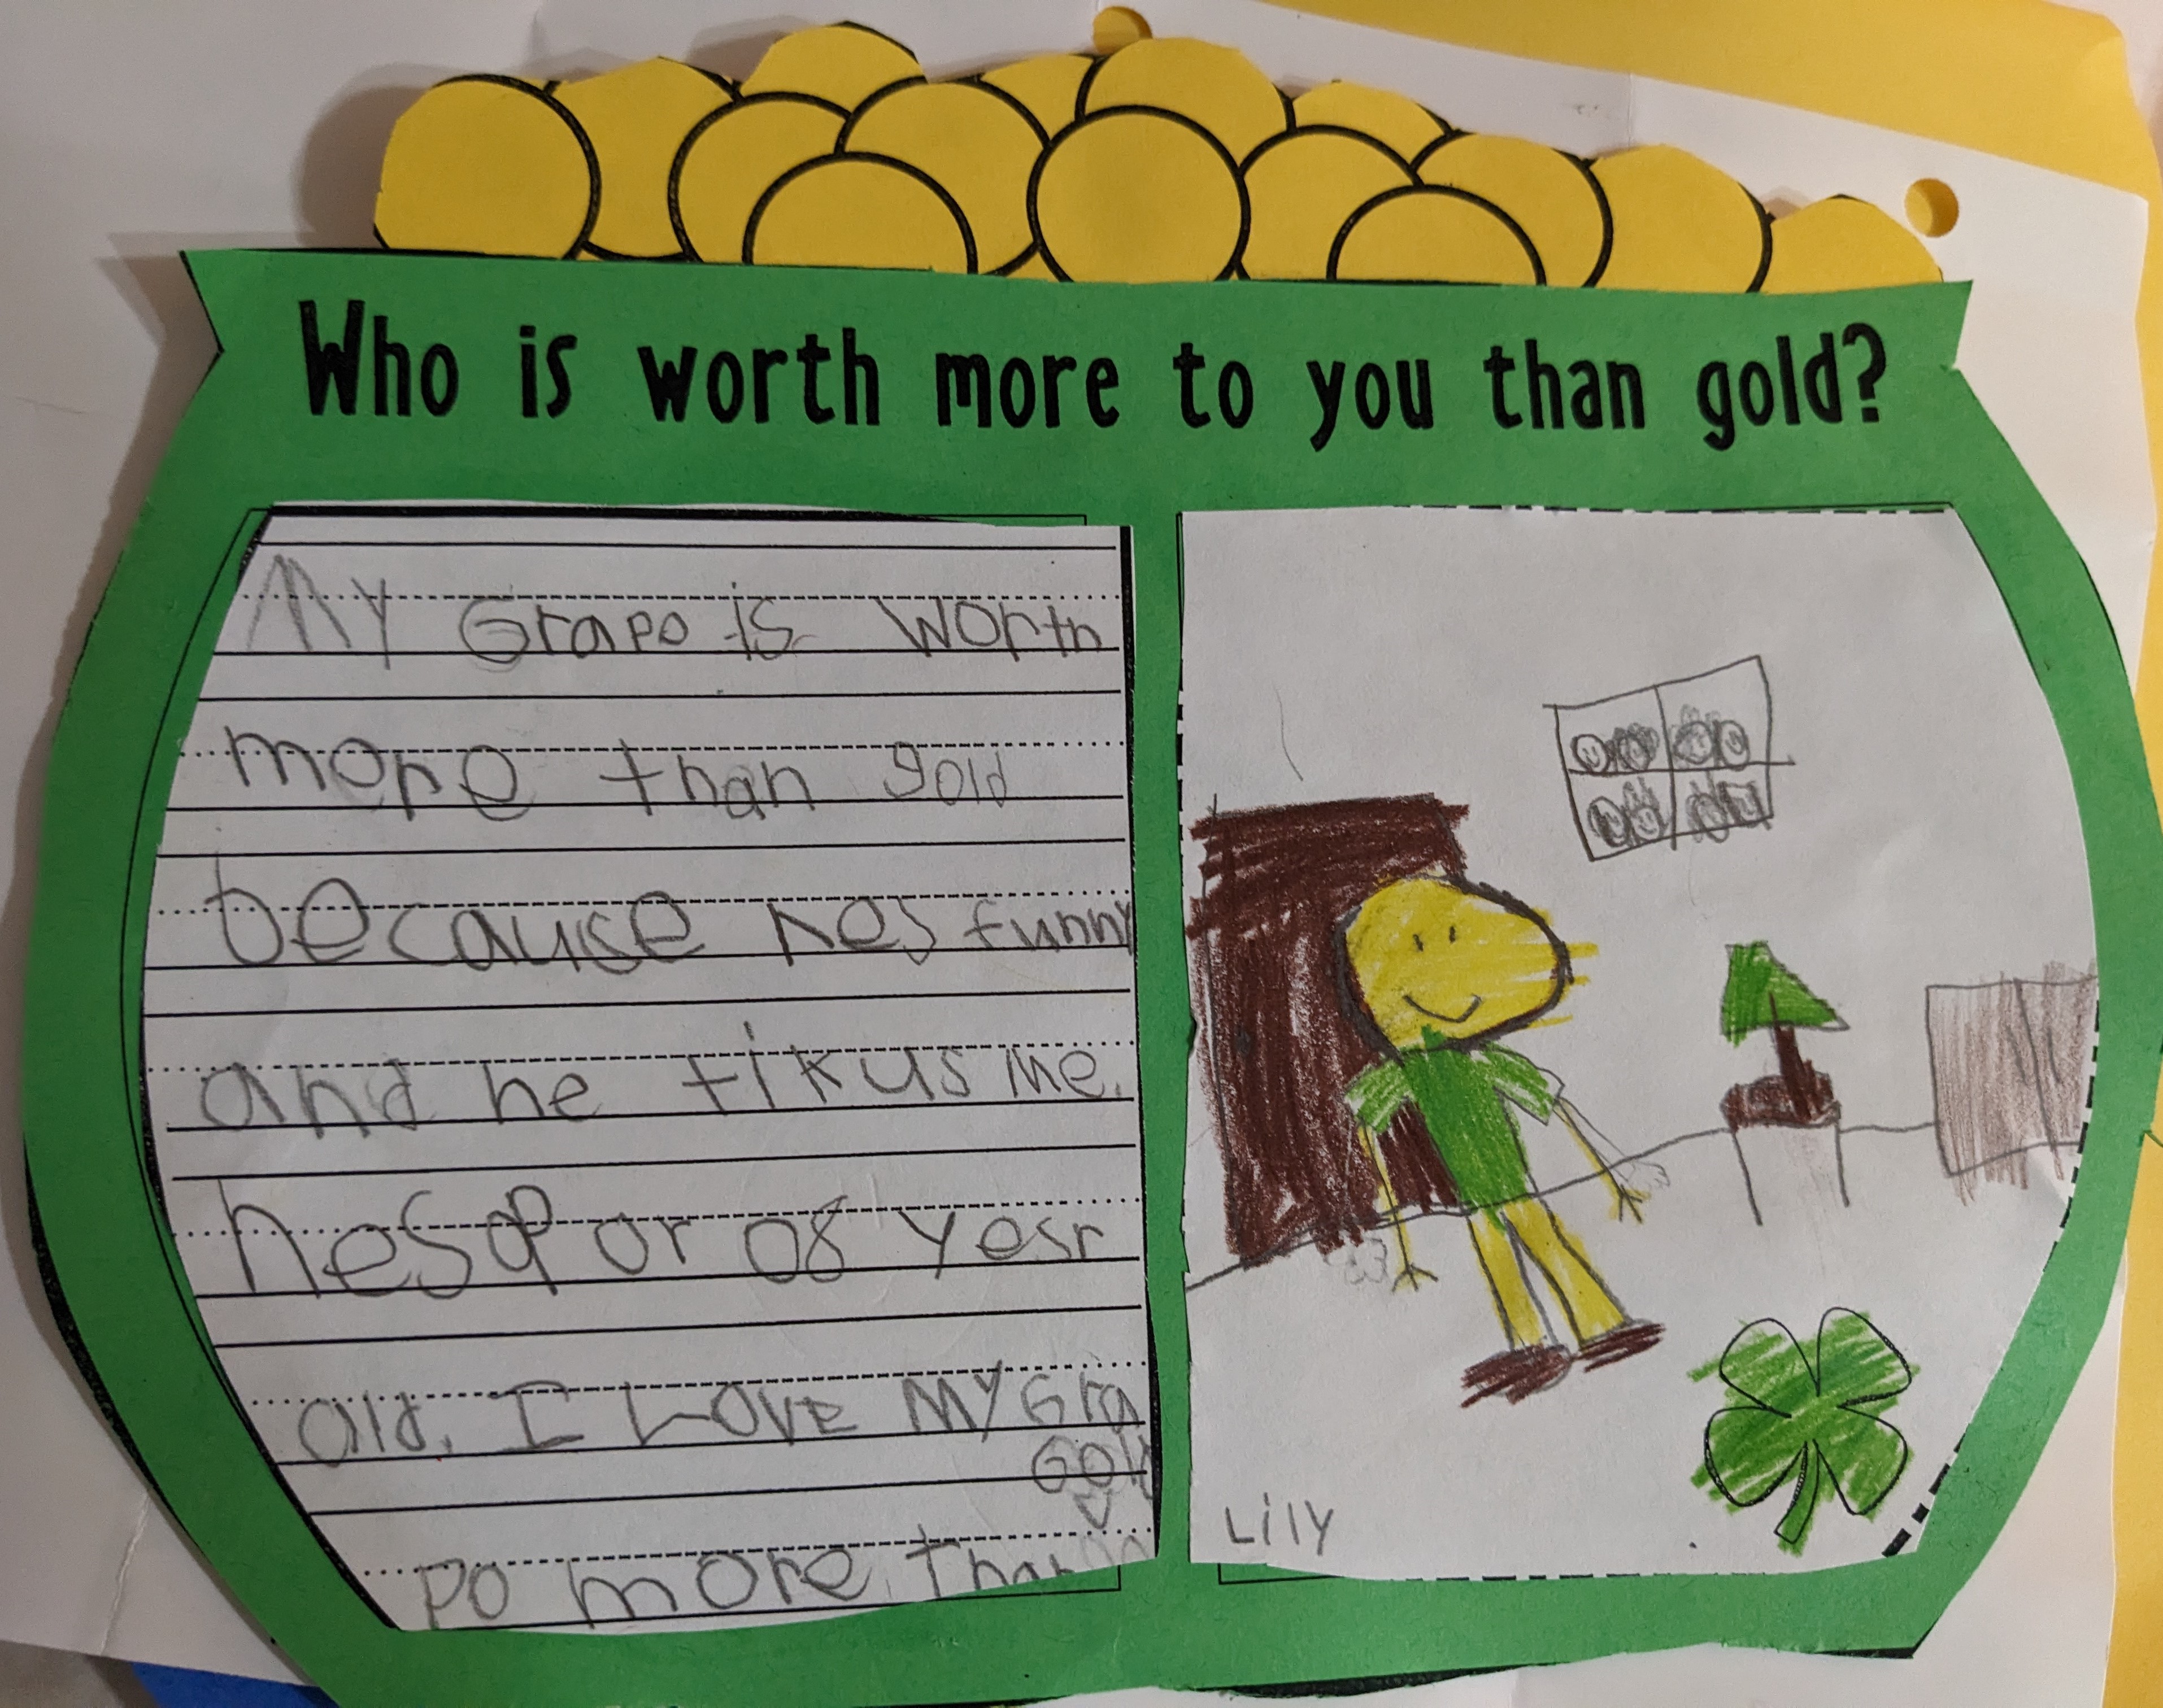 Who is worth more to you than gold?
My Grapo is worth
more than gold
because hes funny
and he tikus me.
hesap or 08 yesr
old. I Love My Gra
Gold
po more Than
Lily